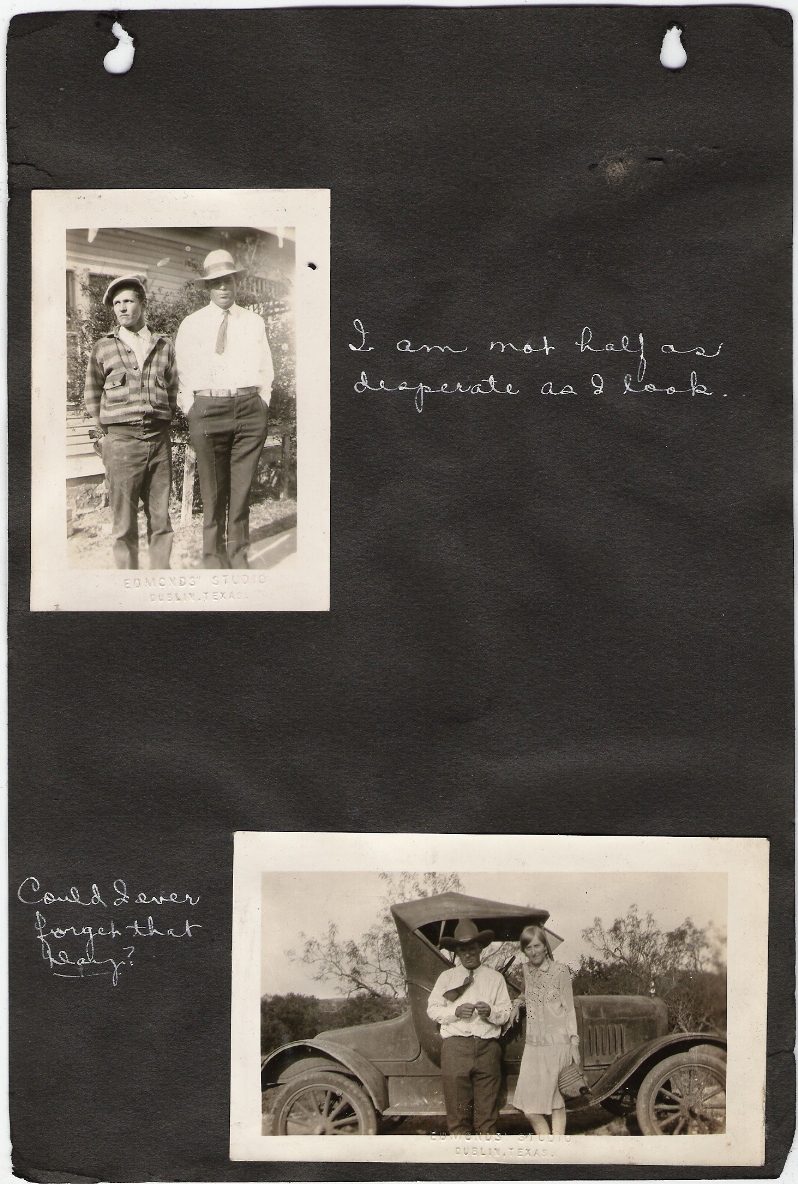 I am not half as
desperate as I look.
EDMONDS' STUDIO
DUBLIN, TEXAS.
Could I ever
forget that
day?
EDMONDS' STUDIO
DUBLIN, TEXAS.